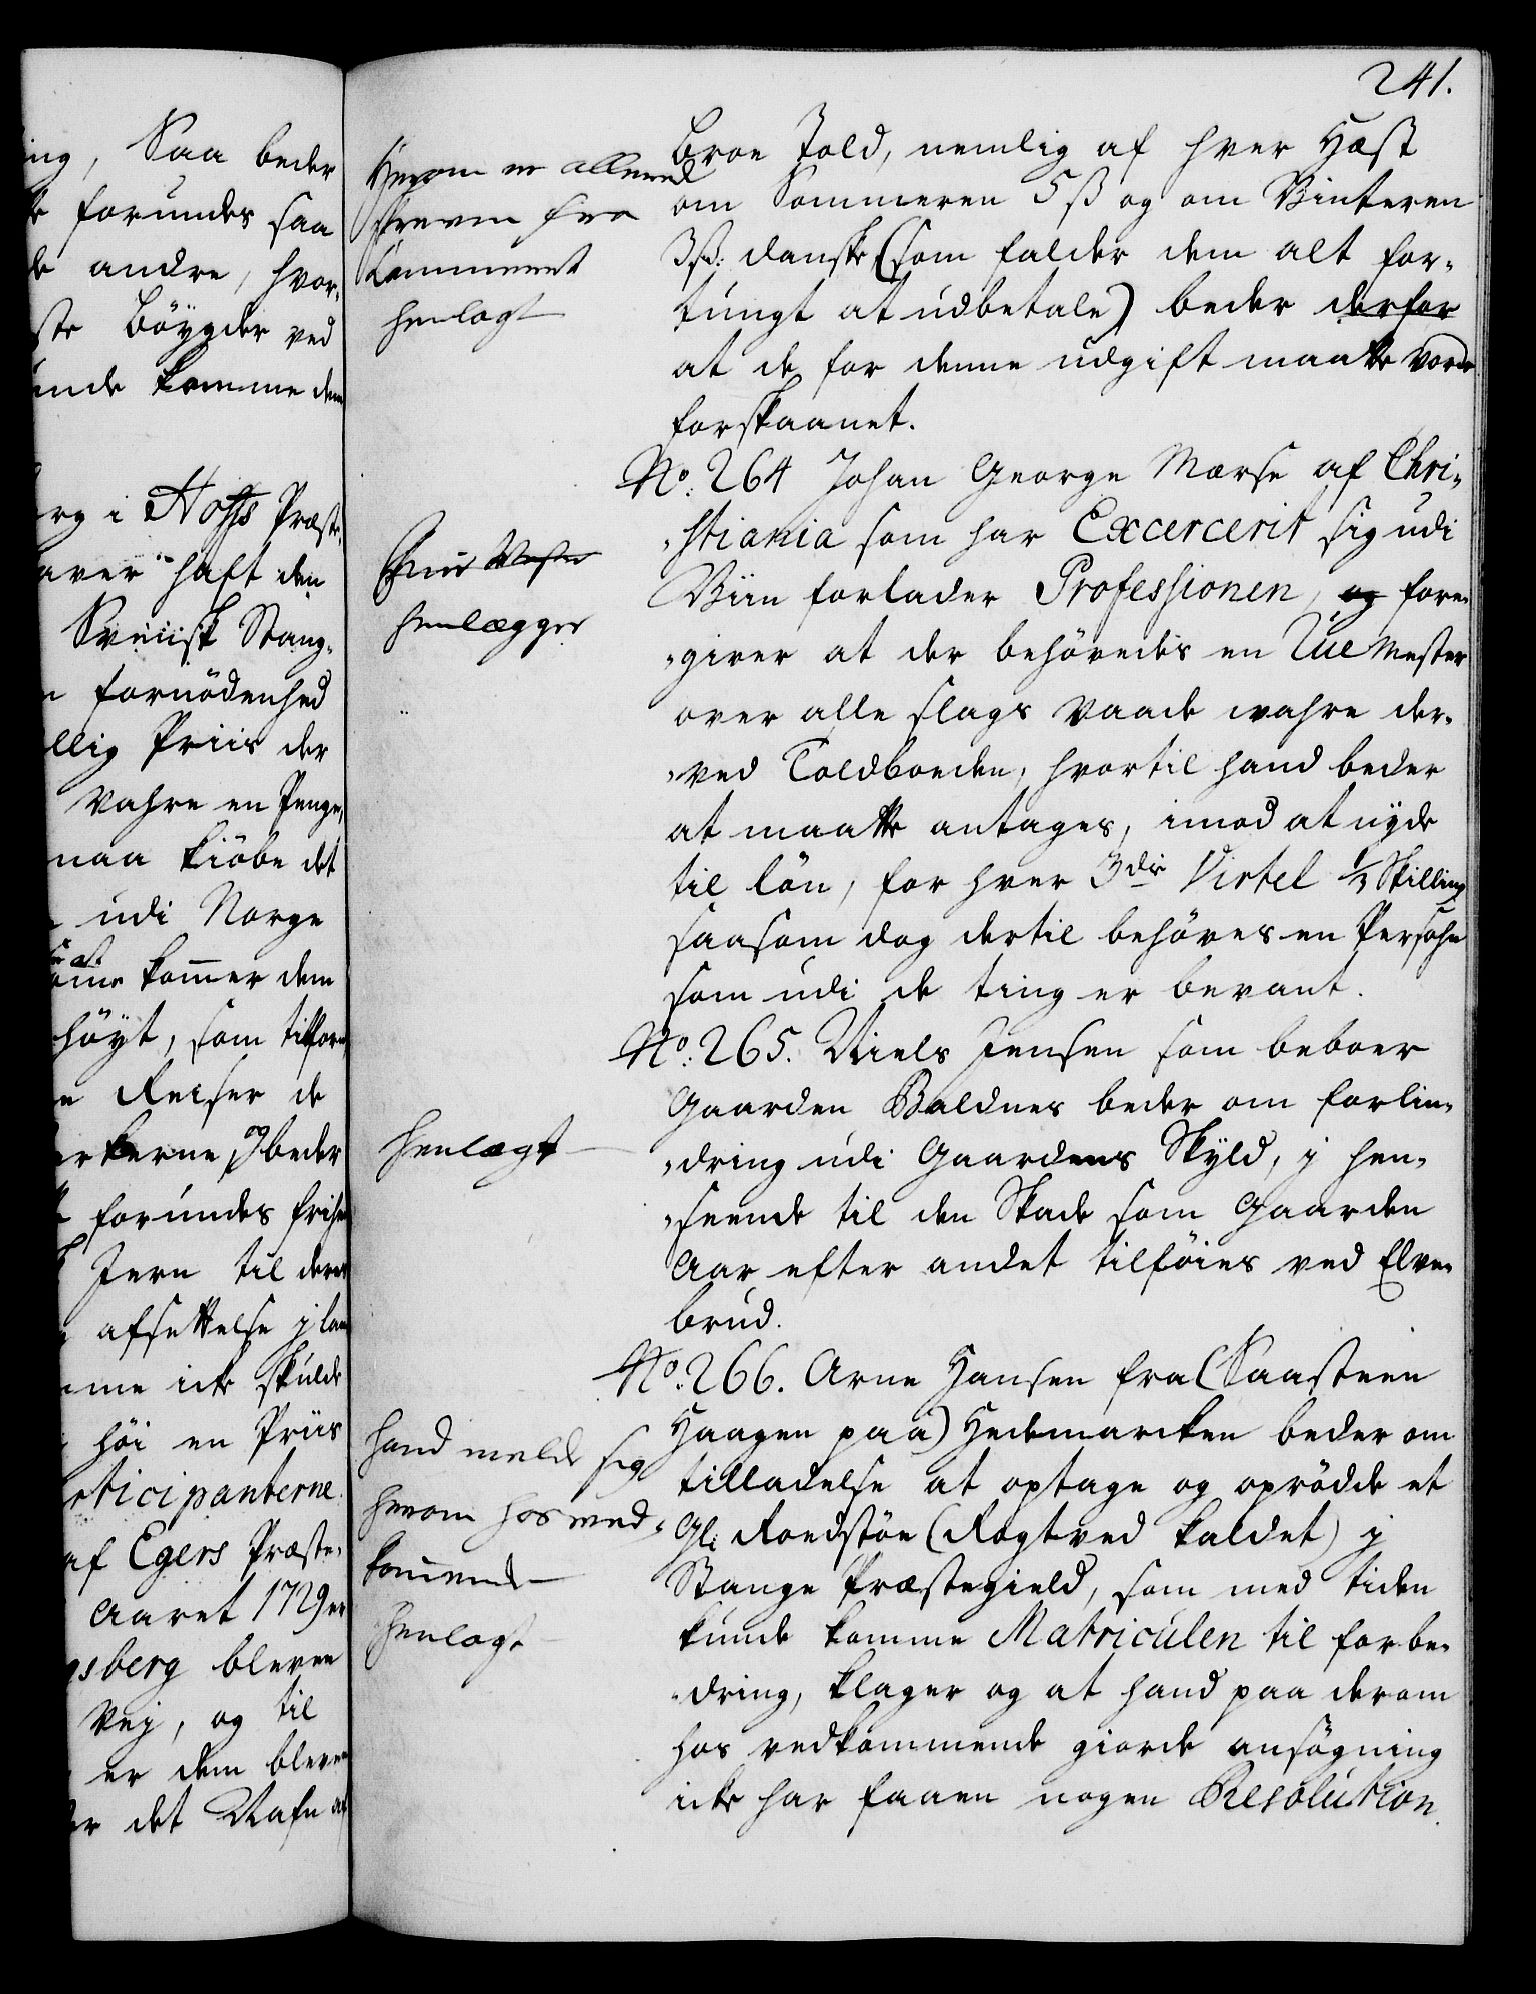 241.
ing, Saa beder
forundes saa
andre, hvor-
ste böygder ved
unde komme dem
rg i Hoffs Præste-
aver haft den
Sveiisk Stang-
fornödenhed
llig Priis der
Vahre en Penge,
maa kiöbe det
udi Norge
kommer dem
höyt, som tilforn
Reiser de
erkerne, og beder
forundes frihed
Jern til deres
afsettelse j lan
me icke skulde
höi en Priis
rticipanterne.
af Egers Præste-
Aaret 1729 er
gsberg bleven
Vej, og til
er dem bleven
er det Nafn af
Herom er allereed
skreven fra
Kammeret
henlagt
henlægges
henlægt
hand melde sig
herom hos ved-
kommende
henlagt
Broe Told, nemlig af hver Hæst
om Sommeren 5 ß og om Vinteren
3 ß: danske (som falder dem alt for-
tungt at udbetale) beder derfor
at de for denne udgift maatte vorde
forskaanet.
No. 264 Johan George Marse af Chri-
stiania som har Excercerit sig udi
Viin forlader Professionen, og fore-
giver at der behövedes en Rüe Mester
over alle slags vaade wahre der-
ved Toldboeden, hvortil hand beder
at maatte antages, imod at nyde
til lön, for hver 3die Virtel 1/2 Skilling
saasom dog dertil behöves en Persohn
som udi de ting er bevant.
No. 265. Niels Jensen som beboer
Gaarden Baldnes beder om forlin-
dring udi Gaardens Skyld, j hen-
seende til den Skade som Gaarden
Aar efter andet tilföies ved Elve-
brud.
No. 266. Arne Hansen fra (Saasteen
Haagen paa) Hedemarcken beder om
tilladelse at optage og oprödde et
Gl: Roedstöe (Rogtved kaldet) j
Stange Præstegield, som med tiden
kunde komme Matriculen til forbe-
dring, klager og at hand paa derom
hos vedkommende giorde ansögning
icke har faaen nogen Resolution.